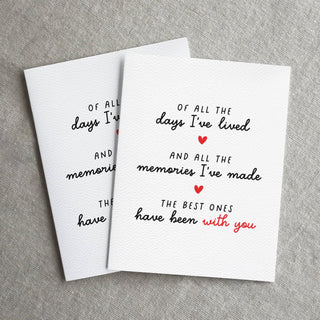 OF ALL
days I've
AND
memories
THE
have been
OF ALL THE
days I've lived
AND ALL THE
memories I've made
THE BEST ONES
have been with you